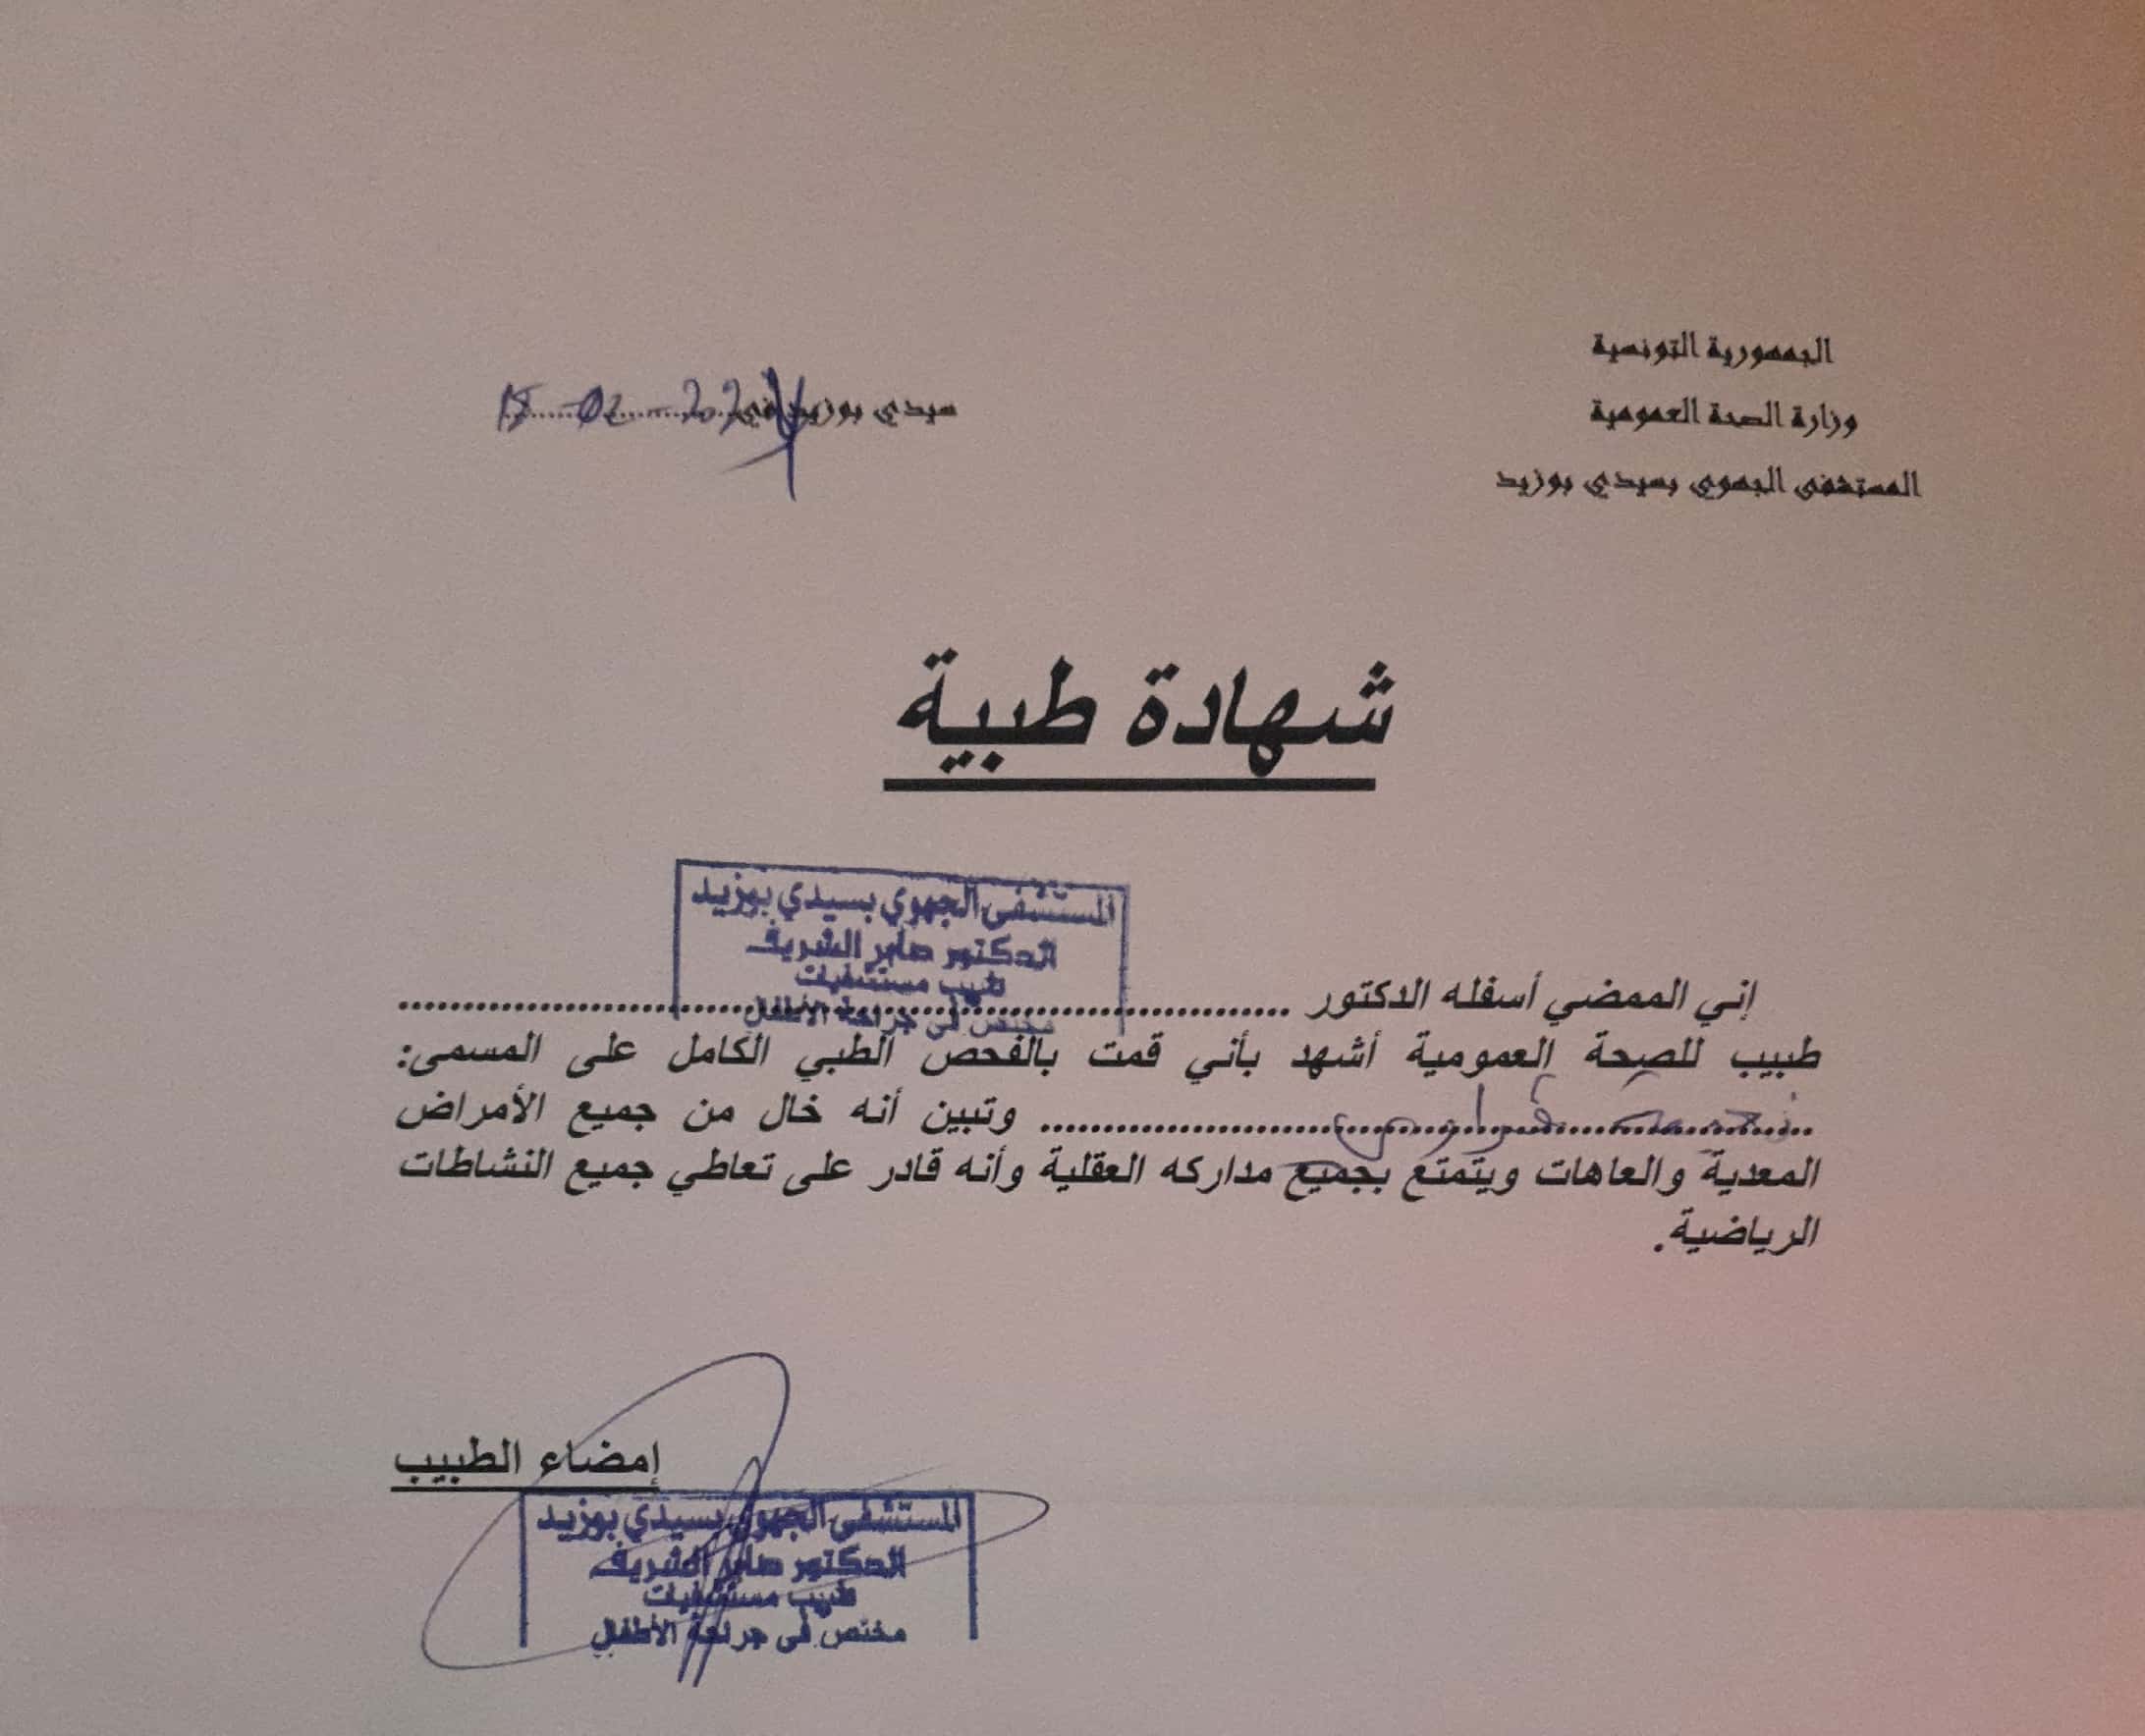 الجمهورية التونسية
وزارة الصحة العمومية
المستشفى الجهوي بسيدي بوزيد
سيدي بوزيد في
شهادة طبية
المستشفى الجهوي بسيدي بوزيد
الدكتور صابر الشريف
طبيب مستشفيات
مختص في جراحة الأطفال
إني الممضي أسفله الدكتور ........................................
طبيب للصحة العمومية أشهد بأني قمت بالفحص الطبي الكامل على المسمى:
........................................ وتبين أنه خال من جميع الأمراض
المعدية والعاهات ويتمتع بجميع مداركه العقلية وأنه قادر على تعاطي جميع النشاطات
الرياضية.
إمضاء الطبيب
المستشفى الجهوي بسيدي بوزيد
الدكتور صابر الشريف
طبيب مستشفيات
مختص في جراحة الأطفال